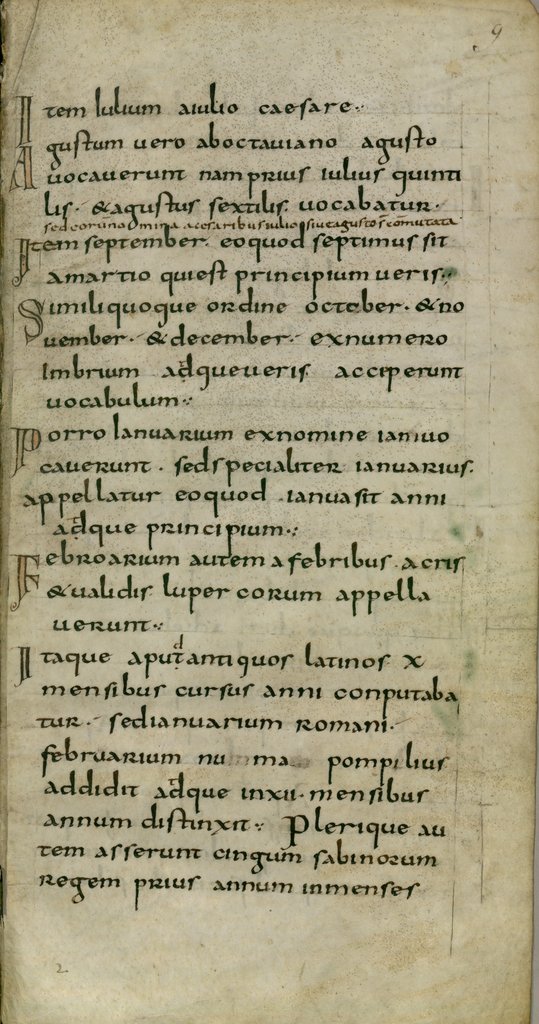 9
Item Iulium aiulio caesare.
Agustum uero aboctauiano agusto
uocauerunt nam prius iulius quinti
lis. & agustus sextilis uocabatur.
sed eorum nomina a cesaribus iulio siue agusto st cōmutata
Item september. eoquod septimus sit
amartio qui est principium ueris.
Similiquoque ordine october. & no
uember. & december. exnumero
Imbrium adque ueris acceperunt
uocabulum.
Porro Ianuarium exnomine iani uo
cauerunt. sed specialiter ianuarius.
appellatur eoquod ianua sit anni
adque principium.
Febroarium autem a febribus acris
& ualidis lupercorum appella
uerunt.
Itaque aput antiquos latinos X
mensibus cursus anni conputaba
tur. sed ianuarium romani.
februarium numma pompilius
addidit adque inxii. mensibus
annum distinxit. Plerique au
tem asserunt cingum sabinorum
regem prius annum inmenses
2